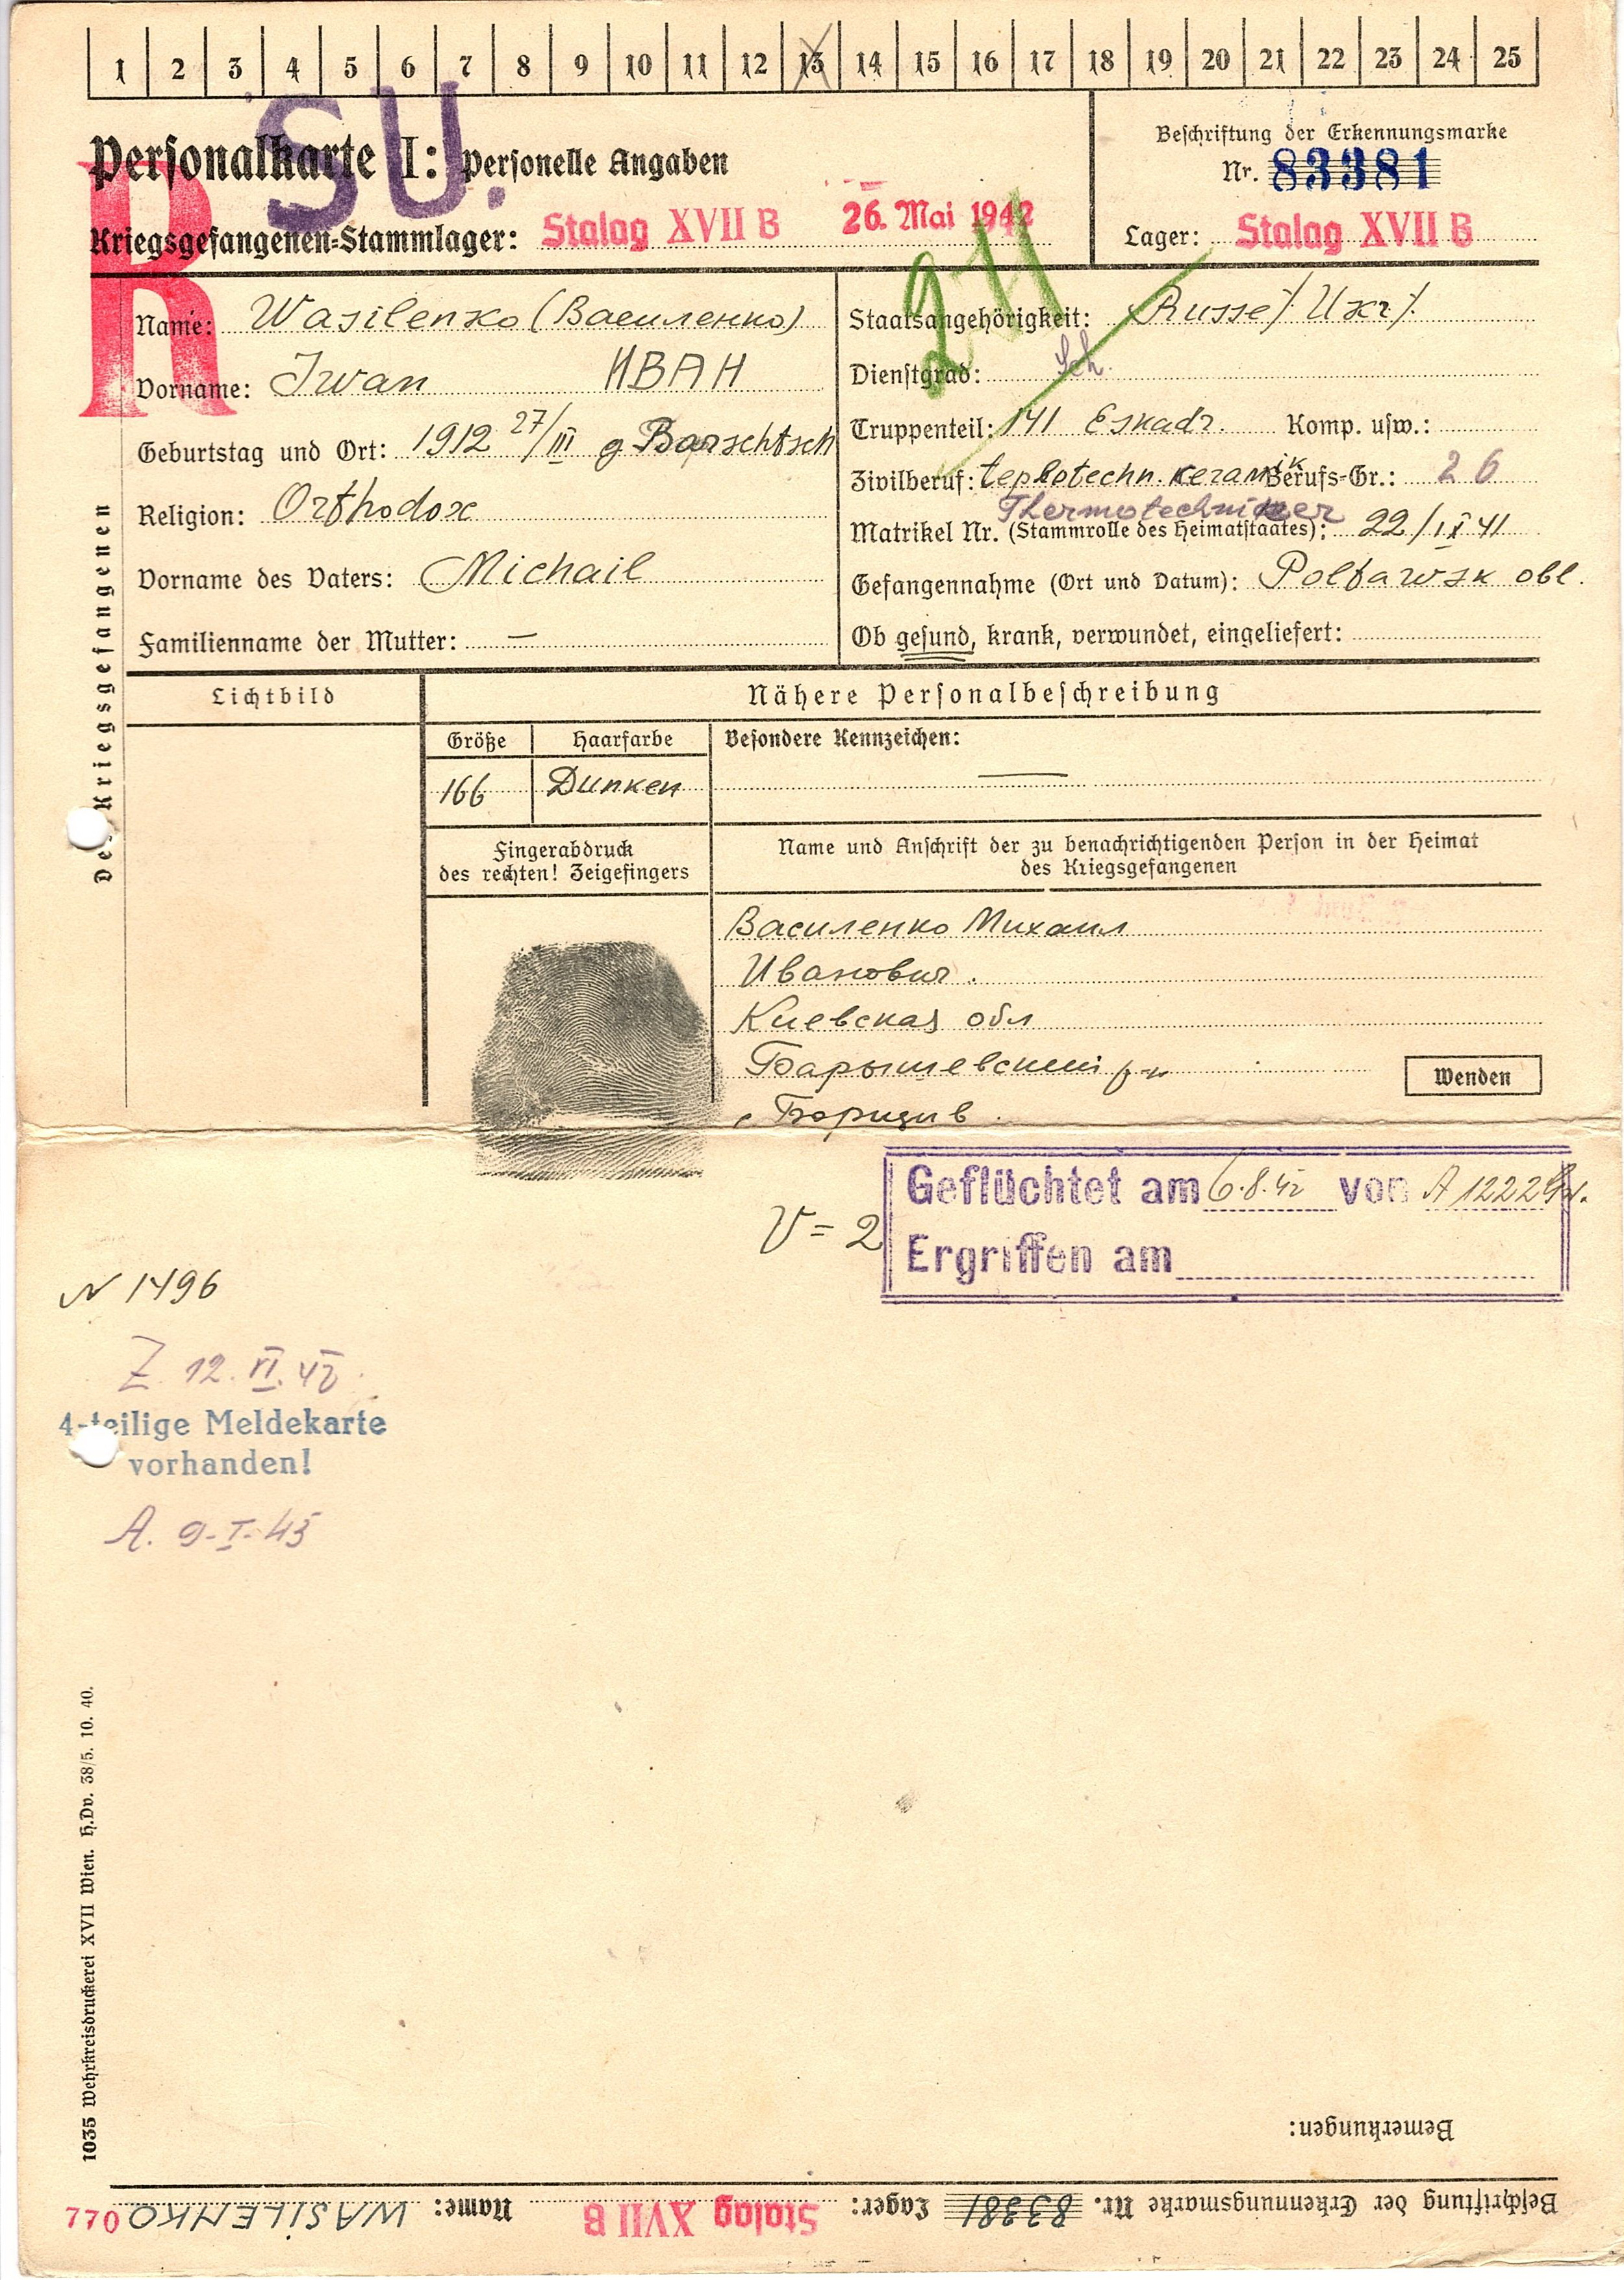 1 2 3 4 5 6 7 8 9 10 11 12 13 14 15 16 17 18 19 20 21 22 23 24 25
SU.
R
Personalkarte I: Personelle Angaben
Kriegsgefangenen-Stammlager: Stalag XVII B 26. Mai 1942
Beschriftung der Erkennungsmarke
Nr. 83381
Lager: Stalag XVII B
Des Kriegsgefangenen
Name: Wasilenko (Василенко)
Vorname: Iwan ИВАН
Geburtstag und Ort: 1912 27/III g Barschtsch
Religion: Orthodox
Vorname des Vaters: Michail
Familienname der Mutter: —
Staatsangehörigkeit: Russe/ Ukr/.
Dienstgrad: Sch.
Truppenteil: 141 Eskadr. Komp. usw.:
Zivilberuf: teplotechn. keramik Berufs-Gr.: 26
Thermotechniker
Matrikel Nr. (Stammrolle des Heimatstaates): 22/IX 41
Gefangennahme (Ort und Datum): Poltawsk obl.
Ob gesund, krank, verwundet, eingeliefert:
Lichtbild
Nähere Personalbeschreibung
Größe Haarfarbe Besondere Kennzeichen:
166 Dunken —
Fingerabdruck
des rechten! Zeigefingers
Name und Anschrift der zu benachrichtigenden Person in der Heimat
des Kriegsgefangenen
Василенко Михаил
Иванович.
Киевская обл
Барышевский р-н
Wenden
Geflüchtet am 6.8.42 von A 1222
Ergriffen am
V = 2
N 1496
Z. 12. VI. 42.
4-teilige Meldekarte
vorhanden!
A. 9-I-43
1035 Wehrkreisdruckerei XVII Wien. H.Dv. 38/5. 10. 40.
Bemerkungen:
Beschriftung der Erkennungsmarke Nr. 83381 Lager: Stalag XVII B Name: WASILENKO 770